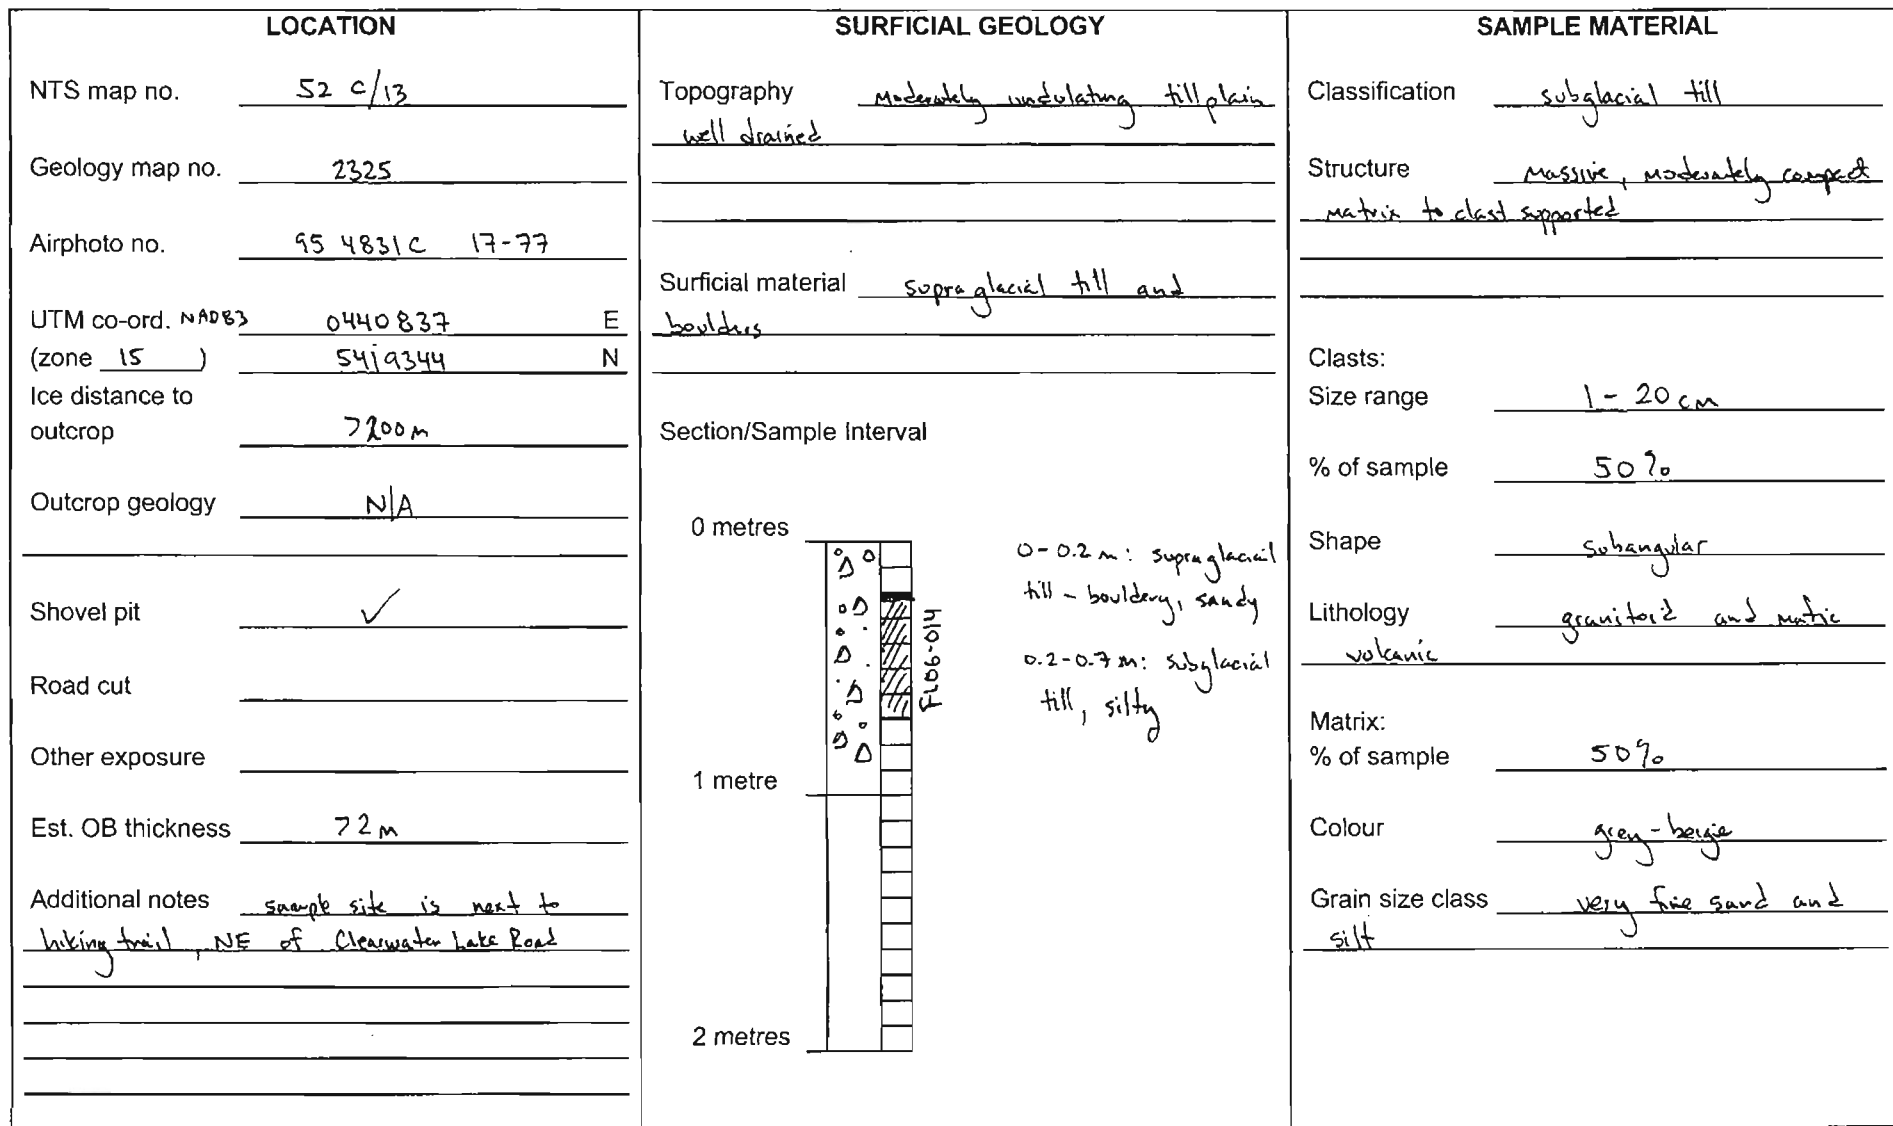 LOCATION
NTS map no. 52 C/13
Geology map no. 2325
Airphoto no. 95 4831C 17-77
UTM co-ord. NAD83 0440837 E
(zone 15 ) 5419344 N
Ice distance to
outcrop >200m
Outcrop geology N/A
Shovel pit ✓
Road cut
Other exposure
Est. OB thickness >2m
Additional notes sample site is next to
hiking trail, NE of Clearwater Lake Road
SURFICIAL GEOLOGY
Topography Moderately undulating till plain
well drained
Surficial material supraglacial till and
boulders
Section/Sample Interval
0 metres
0-0.2m: supraglacial
till - bouldery, sandy
FL06-014
0.2-0.7m: subglacial
till, silty
1 metre
2 metres
SAMPLE MATERIAL
Classification subglacial till
Structure Massive, moderately compact
matrix to clast supported
Clasts:
Size range 1-20cm
% of sample 50%
Shape subangular
Lithology granitoid and mafic
volcanic
Matrix:
% of sample 50%
Colour grey-beige
Grain size class very fine sand and
silt